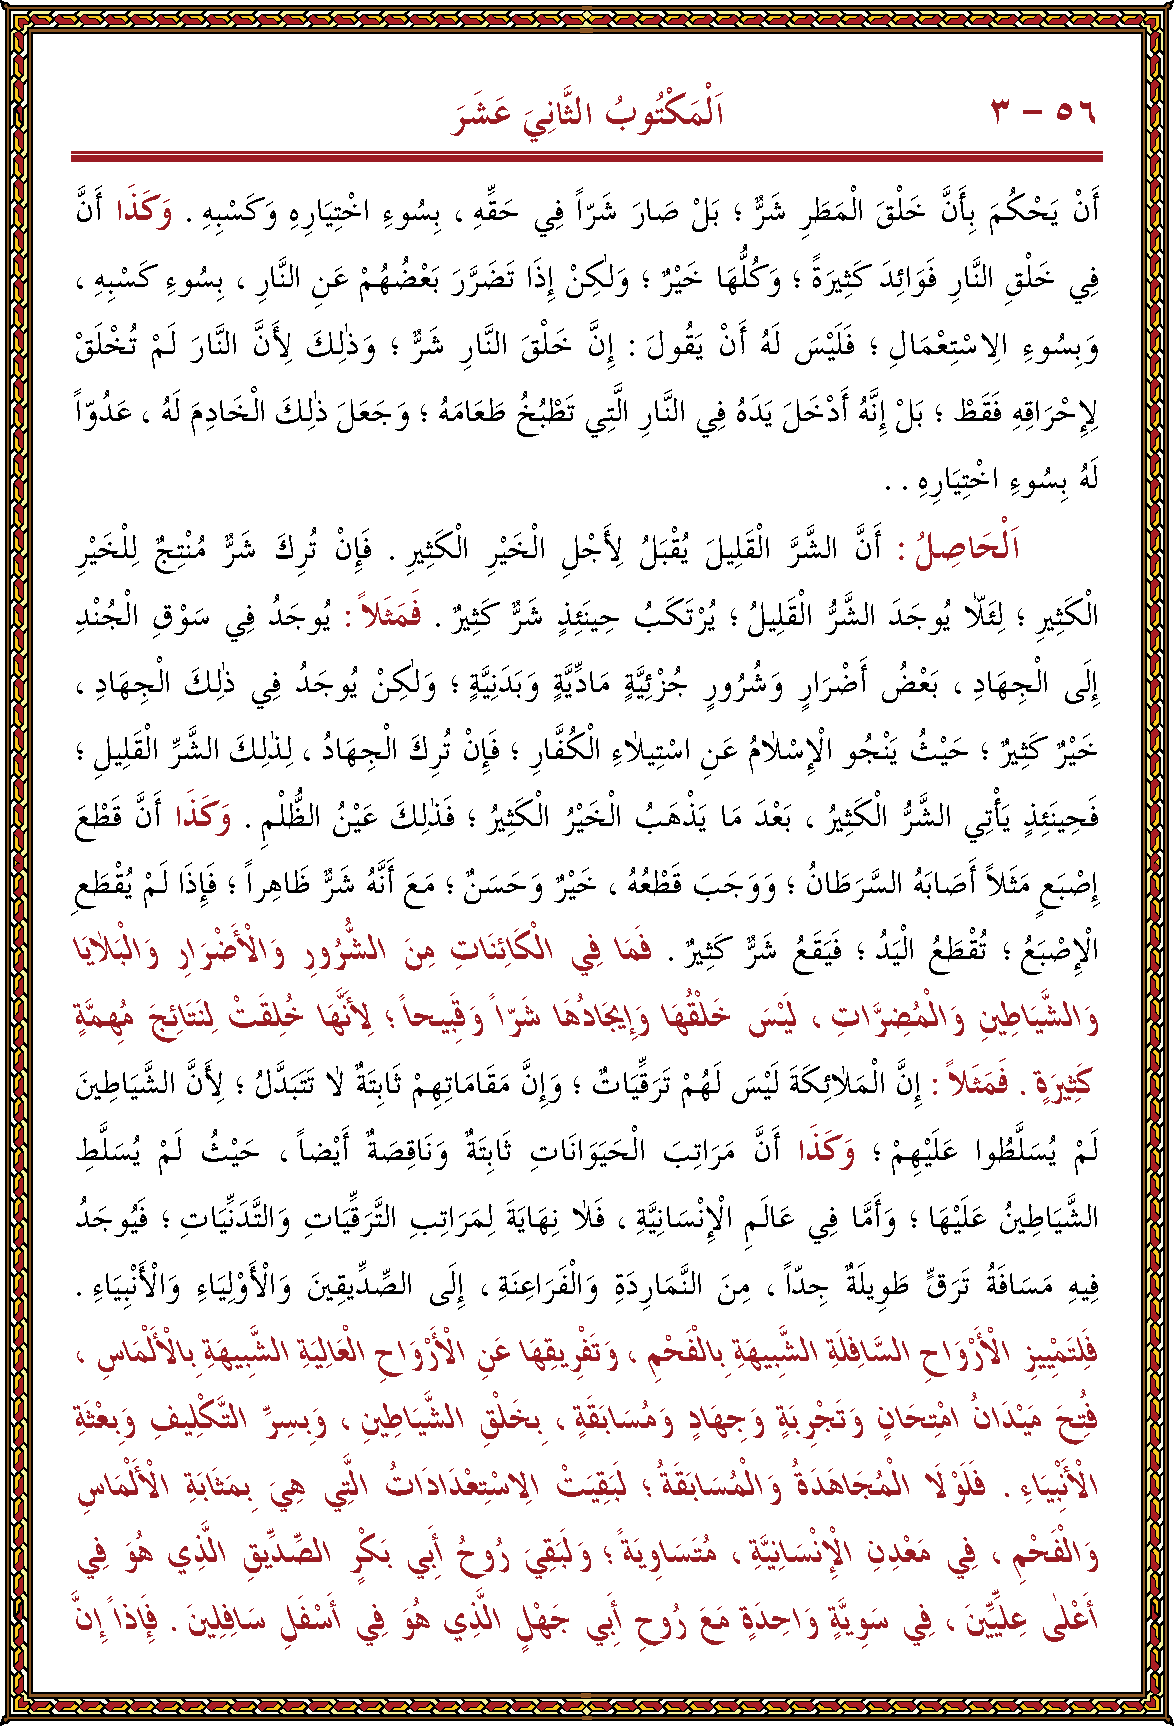 ٥٦ – ٣
اَلْمَكْتُوبُ الثَّانِيَ عَشَرَ
أَنْ يَحْكُمَ بِأَنَّ خَلْقَ الْمَطَرِ شَرٌّ ؛ بَلْ صَارَ شَرّاً فِي حَقِّهِ ، بِسُوءِ اخْتِيَارِهِ وَكَسْبِهِ . وَكَذَا أَنَّ
فِي خَلْقِ النَّارِ فَوَائِدَ كَثِيرَةً ؛ وَكُلُّهَا خَيْرٌ ؛ وَلٰكِنْ إِذَا تَضَرَّرَ بَعْضُهُمْ عَنِ النَّارِ ، بِسُوءِ كَسْبِهِ ،
وَبِسُوءِ الِاسْتِعْمَالِ ؛ فَلَيْسَ لَهُ أَنْ يَقُولَ : إِنَّ خَلْقَ النَّارِ شَرٌّ ؛ وَذٰلِكَ لِأَنَّ النَّارَ لَمْ تُخْلَقْ
لِإِحْرَاقِهِ فَقَطْ ؛ بَلْ إِنَّهُ أَدْخَلَ يَدَهُ فِي النَّارِ الَّتِي تَطْبُخُ طَعَامَهُ ؛ وَجَعَلَ ذٰلِكَ الْخَادِمَ لَهُ ، عَدُوّاً
لَهُ بِسُوءِ اخْتِيَارِهِ . .
اَلْحَاصِلُ : أَنَّ الشَّرَّ الْقَلِيلَ يُقْبَلُ لِأَجْلِ الْخَيْرِ الْكَثِيرِ . فَإِنْ تُرِكَ شَرٌّ مُنْتِجٌ لِلْخَيْرِ
الْكَثِيرِ ؛ لِئَلَّا يُوجَدَ الشَّرُّ الْقَلِيلُ ؛ يُرْتَكَبُ حِينَئِذٍ شَرٌّ كَثِيرٌ . فَمَثَلاً : يُوجَدُ فِي سَوْقِ الْجُنْدِ
إِلَى الْجِهَادِ ، بَعْضُ أَضْرَارٍ وَشُرُورٍ جُزْئِيَّةٍ مَادِّيَّةٍ وَبَدَنِيَّةٍ ؛ وَلٰكِنْ يُوجَدُ فِي ذٰلِكَ الْجِهَادِ ،
خَيْرٌ كَثِيرٌ ؛ حَيْثُ يَنْجُو الْإِسْلَامُ عَنِ اسْتِيلَاءِ الْكُفَّارِ ؛ فَإِنْ تُرِكَ الْجِهَادُ ، لِذٰلِكَ الشَّرِّ الْقَلِيلِ ؛
فَحِينَئِذٍ يَأْتِي الشَّرُّ الْكَثِيرُ ، بَعْدَ مَا يَذْهَبُ الْخَيْرُ الْكَثِيرُ ؛ فَذٰلِكَ عَيْنُ الظُّلْمِ . وَكَذَا أَنَّ قَطْعَ
إِصْبَعٍ مَثَلاً أَصَابَهُ السَّرَطَانُ ؛ وَوَجَبَ قَطْعُهُ ، خَيْرٌ وَحَسَنٌ ؛ مَعَ أَنَّهُ شَرٌّ ظَاهِراً ؛ فَإِذَا لَمْ يُقْطَعِ
الْإِصْبَعُ ؛ تُقْطَعُ الْيَدُ ؛ فَيَقَعُ شَرٌّ كَثِيرٌ . فَمَا فِي الْكَائِنَاتِ مِنَ الشُّرُورِ وَالْأَضْرَارِ وَالْبَلَايَا
وَالشَّيَاطِينِ وَالْمُضِرَّاتِ ، لَيْسَ خَلْقُهَا وَإِيجَادُهَا شَرّاً وَقَبِيحاً ؛ لِأَنَّهَا خُلِقَتْ لِنَتَائِجَ مُهِمَّةٍ
كَثِيرَةٍ . فَمَثَلاً : إِنَّ الْمَلَائِكَةَ لَيْسَ لَهُمْ تَرَقِّيَاتٌ ؛ وَإِنَّ مَقَامَاتِهِمْ ثَابِتَةٌ لَا تَتَبَدَّلُ ؛ لِأَنَّ الشَّيَاطِينَ
لَمْ يُسَلَّطُوا عَلَيْهِمْ ؛ وَكَذَا أَنَّ مَرَاتِبَ الْحَيَوَانَاتِ ثَابِتَةٌ وَنَاقِصَةٌ أَيْضاً ، حَيْثُ لَمْ يُسَلَّطِ
الشَّيَاطِينُ عَلَيْهَا ؛ وَأَمَّا فِي عَالَمِ الْإِنْسَانِيَّةِ ، فَلَا نِهَايَةَ لِمَرَاتِبِ التَّرَقِّيَاتِ وَالتَّدَنِّيَاتِ ؛ فَيُوجَدُ
فِيهِ مَسَافَةُ تَرَقٍّ طَوِيلَةٌ جِدّاً ، مِنَ النَّمَارِدَةِ وَالْفَرَاعِنَةِ ، إِلَى الصِّدِّيقِينَ وَالْأَوْلِيَاءِ وَالْأَنْبِيَاءِ .
فَلِتَمْيِيزِ الْأَرْوَاحِ السَّافِلَةِ الشَّبِيهَةِ بِالْفَحْمِ ، وَتَفْرِيقِهَا عَنِ الْأَرْوَاحِ الْعَالِيَةِ الشَّبِيهَةِ بِالْأَلْمَاسِ ،
فُتِحَ مَيْدَانُ امْتِحَانٍ وَتَجْرِبَةٍ وَجِهَادٍ وَمُسَابَقَةٍ ، بِخَلْقِ الشَّيَاطِينِ ، وَبِسِرِّ التَّكْلِيفِ وَبِعْثَةِ
الْأَنْبِيَاءِ . فَلَوْلَا الْمُجَاهَدَةُ وَالْمُسَابَقَةُ ؛ لَبَقِيَتْ الِاسْتِعْدَادَاتُ الَّتِي هِيَ بِمَثَابَةِ الْأَلْمَاسِ
وَالْفَحْمِ ، فِي مَعْدِنِ الْإِنْسَانِيَّةِ ، مُتَسَاوِيَةً ؛ وَلَبَقِيَ رُوحُ أَبِي بَكْرٍ الصِّدِّيقِ الَّذِي هُوَ فِي
أَعْلَى عِلِّيِّينَ ، فِي سَوِيَّةٍ وَاحِدَةٍ مَعَ رُوحِ أَبِي جَهْلٍ الَّذِي هُوَ فِي أَسْفَلِ سَافِلِينَ . فَإِذاً إِنَّ